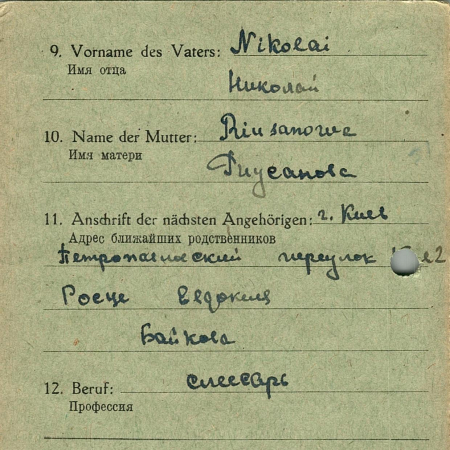 9. Vorname des Vaters: Nikolai
Имя отца
Николай
10. Name der Mutter:
Имя матери
11. Anschrift der nächsten Angehörigen: г. Киев
Адрес ближайших родственников
переулок
Евдокия
Байкова
12. Beruf: слесарь
Профессия